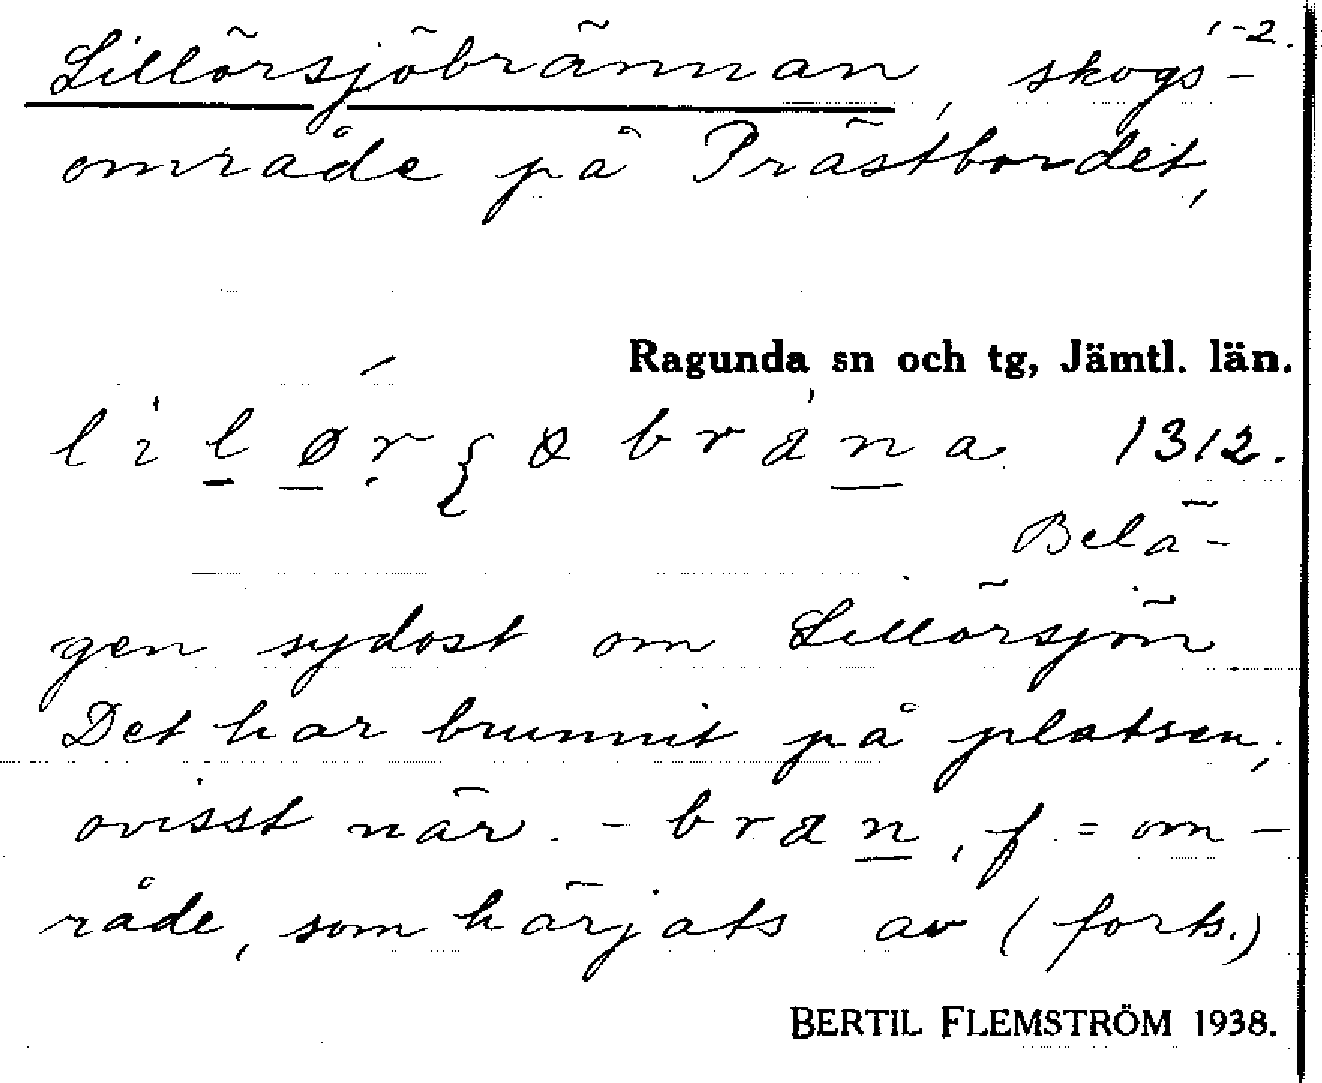 1-2.
Lillörsjöbrännan, skogs-
område på Prästbordet,
Ragunda sn och tg, Jämtl. län.
1312.
Belä-
gen sydost om Lillörsjön
Det har brunnit på platsen,
ovisst när. - bran, f. = om-
råde, som härjats av (forts.)
BERTIL FLEMSTRÖM 1938.